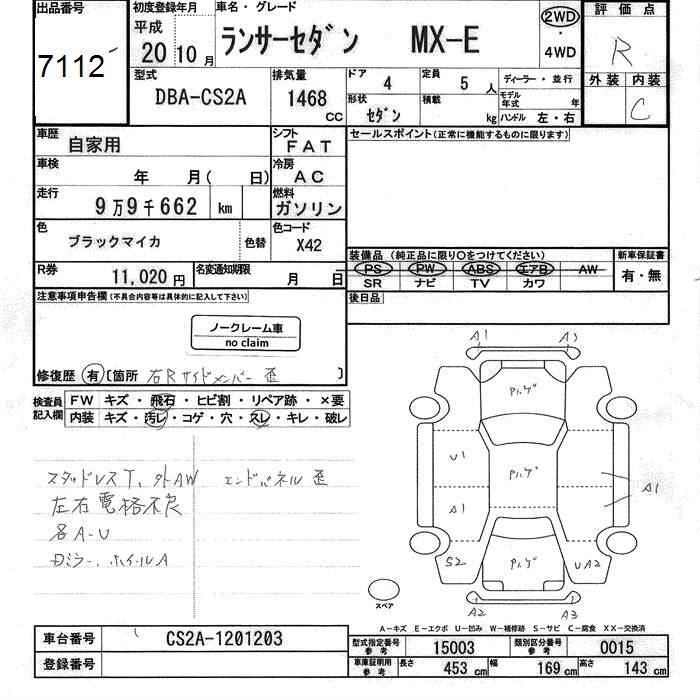 出品番号
7112
初度登録年月
平成
20 10 月
車名・グレード
ランサーセダン MX-E
2WD
・
4WD
評価点
R
外装 内装
C
型式
DBA-CS2A
排気量
1468
CC
ドア 4
定員 5 人
形状 セダン
積載 kg
ディーラー・並行
モデル年式 年
ハンドル 左・右
車歴 自家用
シフト FAT
車検 年 月( 日)
冷房 AC
走行 9万9千662 km
燃料 ガソリン
色 ブラックマイカ 色替
色コード X42
R券 11,020 円
名変通知期限 月 日
セールスポイント(正常に機能するものに限ります)
装備品(純正品に限り○をつけてください)
新車保証書
PS PW ABS エアB AW
SR ナビ TV カワ
有・無
後日品
注意事項申告欄(不具合内容等は具体的に記入して下さい)
ノークレーム車
no claim
修復歴 有 [箇所 右Rサイドメンバー歪 ]
検査員記入欄
FW キズ・飛石・ヒビ割・リペア跡・×要
内装 キズ・汚レ・コゲ・穴・スレ・キレ・破レ
スタッドレスT、外AW エンドパネル歪
左右電格不良
各A-U
ミラー、ホイールA
A1
A1
Pハゲ
U1
Pハゲ
A1
A1
S2
Pハゲ
UA2
A2
A3
スペア
A-キズ E-エクボ U-凹み W-補修跡 S-サビ C-腐食 XX-交換済
車台番号 CS2A-1201203
登録番号
型式指定番号 参考 15003
類別区分番号 参考 0015
車庫証明用 参考
長さ 453 cm
幅 169 cm
高さ 143 cm